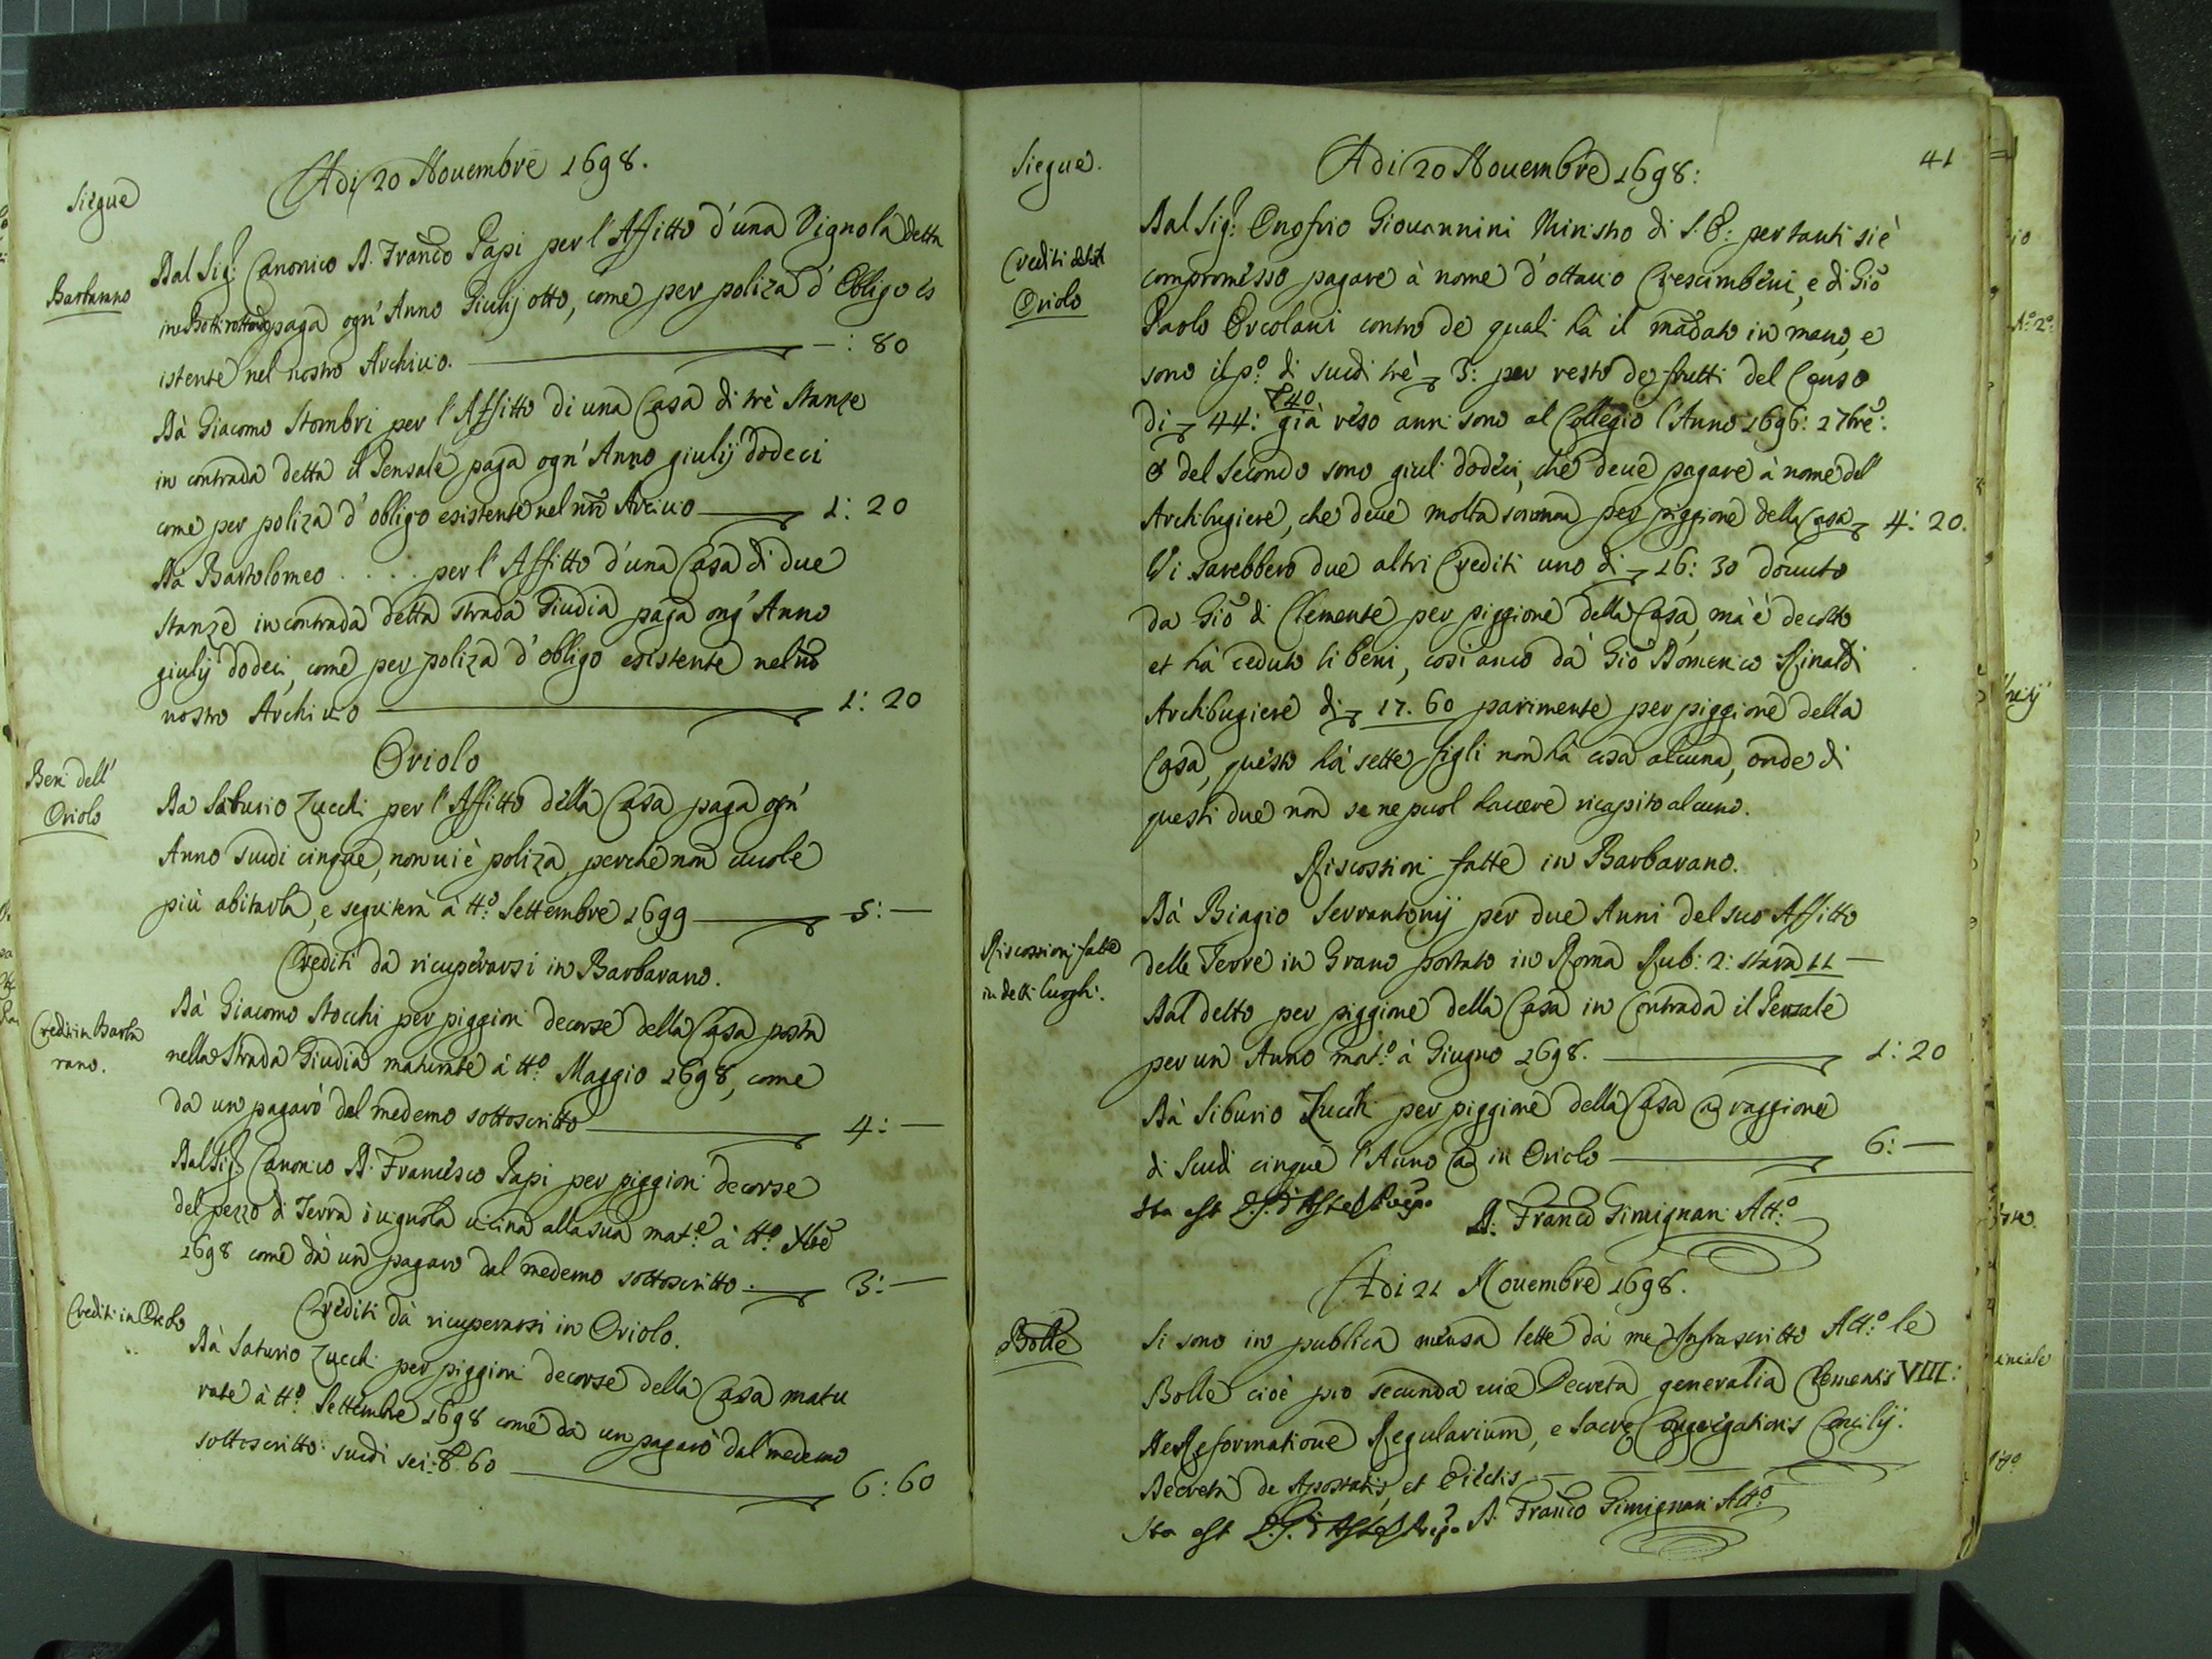 Siegue
Adi 20 Nouembre 1698.
Barbarano
Dal Sig: Canonico D. Franco Papi per l'Affitto d'una Vignola detta
paga ogn' Anno Giulij otto, come per poliza d'Obligo es
istente nel nostro Archiuo. — : 80
Dà Giacomo Stombri per l'Affitto di una Casa di trè Stanze
in contrada detta il Pensale paga ogn' Anno giulij dodeci
come per poliza d'obligo esistente nel nro Arciuo 1: 20
Da Bartolomeo . . . . per l'Affitto d'una Casa di due
stanze in contrada detta strada Giudia paga ong' Anno
giulij dodeci, come per poliza d'obligo esistente nel no
nostro Archiuo 1: 20
Oriolo
Beni dell'
Oriolo
Da Saturio Zucchi per l'Affitto della Casa paga ogn'
Anno scudi cinque, non ui è poliza perche non uuole
più abitarla, e seguiterà à tt.o Settembre 1699 5: —
Crediti da ricuperarsi in Barbarano.
Crediti in Barba
rano.
Dà Giacomo Stocchi per piggioni decorse della Casa posta
nella Strada Giudia maturate à tt.o Maggio 1698, come
da un pagarò dal medemo sottoscritto 4: —
Dal Sig. Canonico D. Francesco Papi per piggioni decorse
del pezzo di Terra ò uignola uicina alla sua mat.e à tt.o Xbre
1698 come dà un pagaro dal medemo sottoscritto. 3: —
Crediti in Oriolo
Crediti dà ricuperarsi in Oriolo.
Dà Saturio Zucchi per piggioni decorse della Casa matu
rate à tt.o Settembre 1698 come da un pagarò dal medemo
sottoscritto scudi sei: 60 6: 60
41
Siegue.
Adi 20 Nouembre 1698:
Crediti
Oriolo
Dal Sig: Onofrio Giouannini Ministro di S. E: per tanti si è
compromesso pagare à nome d'ottauio Crescimbeni, e di Gio
Paolo Ercolani contro de quali hà il madato in mano, e
sono il p.o di scudi trè 3: per resto de frutti del Censo
40
di 44: già reso anni sono al Collegio l'Anno 1696: 7bre:
e del secondo sono giuli dodeci, che deue pagare à nome del
Archibugiere, che deue molta somma per piggione della Casa 4: 20.
Vi sarebbero due altri Crediti uno di 16: 30 douuto
da Gio di Clemente per piggione della Casa, mà è decotto
et hà ceduto li beni, così anco dà Gio Domenico Rinaldi
Archibugiere di 17. 60 parimente per piggione della
Casa, questo hà sette figli non hà cosa alcuna, onde di
questi due non se ne puol hauere ricapito alcuno.
Riscossioni fatte in Barbarano.
Riscossioni fatte
in detti luoghi.
Dà Biagio Serrantonij per due Anni del suo Affitto
delle Terre in Grano portato in Roma Rub: 2: stara 11 —
Dal detto per piggione della Casa in Contrada il Pensale
per un Anno mat.o à Giugno 1698. 1: 20
Dà Siturio Zucchi per piggione della Casa à raggione
di Scudi cinque l'Anno in Oriolo 6: —
Ita est
D. Franco Gimignani Att.o
Adi 21 Nouembre 1698.
Bolle
Si sono in publica mensa lette dà me Infrascritto Att.o le
Bolle cioè pro secunda uice Decreta generalia Clementis VIII:
De Reformatione Regularium, e Sacræ Congregationis Concilij.
Decreta de Apostatis, et Eiectis
Ita est
D. Franco Gimignani Att.o